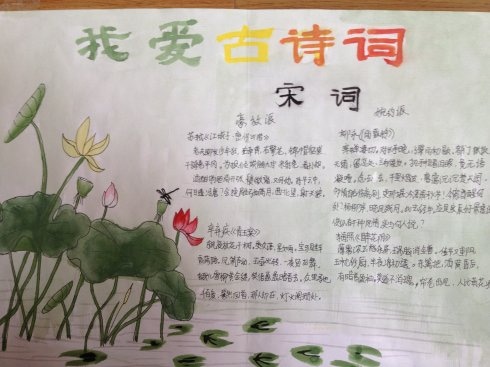 我爱古诗词
宋词
豪放派
苏轼《江城子·密州出猎》
老夫聊发少年狂，左牵黄，右擎苍，锦帽貂裘，
千骑卷平冈。为报倾城随太守，亲射虎，看孙郎。
酒酣胸胆尚开张，鬓微霜，又何妨。持节云中，
何日遣冯唐？会挽雕弓如满月，西北望，射天狼。
辛弃疾《青玉案》
东风夜放花千树，更吹落，星如雨。宝马雕车
香满路。凤箫声动，玉壶光转，一夜鱼龙舞。
蛾儿雪柳黄金缕，笑语盈盈暗香去。众里寻他
千百度，蓦然回首，那人却在，灯火阑珊处。
婉约派
柳永《雨霖铃》
寒蝉凄切，对长亭晚，骤雨初歇。都门帐饮
无绪，留恋处，兰舟催发。执手相看泪眼，竟无语
凝噎。念去去，千里烟波，暮霭沉沉楚天阔。
多情自古伤离别，更那堪冷落清秋节！今宵酒醒何
处？杨柳岸，晓风残月。此去经年，应是良辰好景虚
设。便纵有千种风情，更与何人说？
《醉花阴》
薄雾浓云愁永昼，瑞脑消金兽。佳节又重阳，
玉枕纱厨，半夜凉初透。东篱把酒黄昏后，
有暗香盈袖。莫道不消魂，帘卷西风，人比黄花